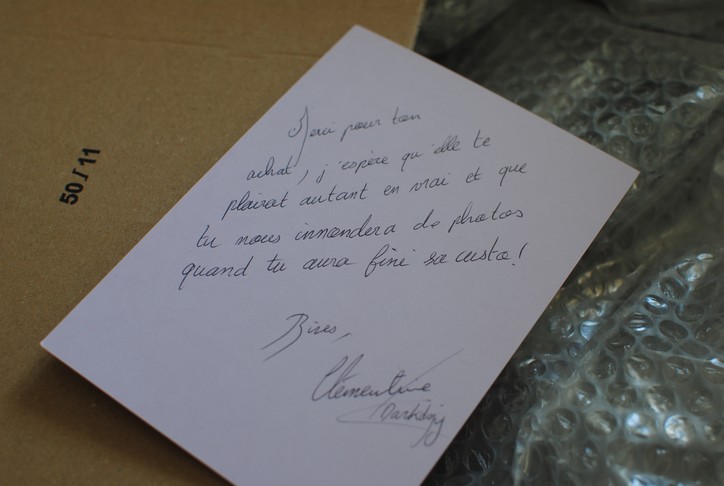 Merci pour ton
achat, j'espère qu'elle te
plairat autant en vrai et que
tu nous innondera de photos
quand tu aura fini sa custo!
Bises,
Clémentine
50J11